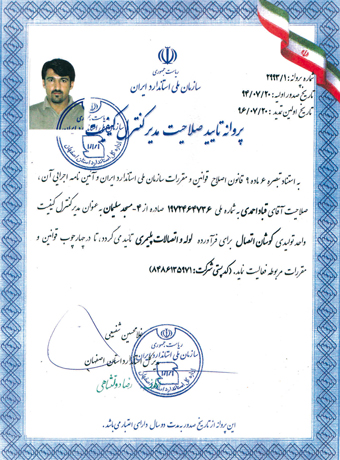 ریاست جمهوری
سازمان ملی استاندارد ایران
شماره پروانه: ۲۹۹۳/۱
تاریخ صدور اولیه: ۹۴/۰۷/۲۰
تاریخ اولین تمدید: ۹۶/۰۷/۲۰
پروانه تایید صلاحیت مدیر کنترل کیفیت
به استناد تبصره ۶ ماده ۹ قانون اصلاح قوانین و مقررات سازمان ملی استاندارد ایران و آئین نامه اجرایی آن،
صلاحیت آقای قباد احمدی به شماره ملی ۱۹۷۲۶۴۷۳۶ صادره از ۴-مسجدسلیمان به عنوان مدیر کنترل کیفیت
واحد تولیدی کوشان اتصال برای فرآورده لوله و اتصالات پلیمری تایید می گردد، تا در چهارچوب قوانین و
مقررات مربوطه فعالیت نماید. (کدپستی شرکت: ۸۴۸۶۱۳۵۹۷۱)
غلامحسین شفیعی
مدیرکل استاندارد استان اصفهان
ریاست جمهوری
سازمان ملی استاندارد ایران
این پروانه از تاریخ صدور به مدت دو سال دارای اعتبار می باشد.